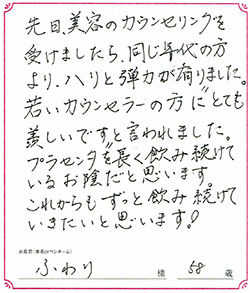 先日、美容のカウンセリングを
受けましたら、同じ年代の方
より、ハリと弾力が有りました。
若いカウンセラーの方に"とても
羨しいですと言われました。
プラセンタを長く飲み続けて
いるお陰だと思います。
これからもずっと飲み続けて
いきたいと思います!
お名前(本名かペンネーム)
ふわり 様 58 歳